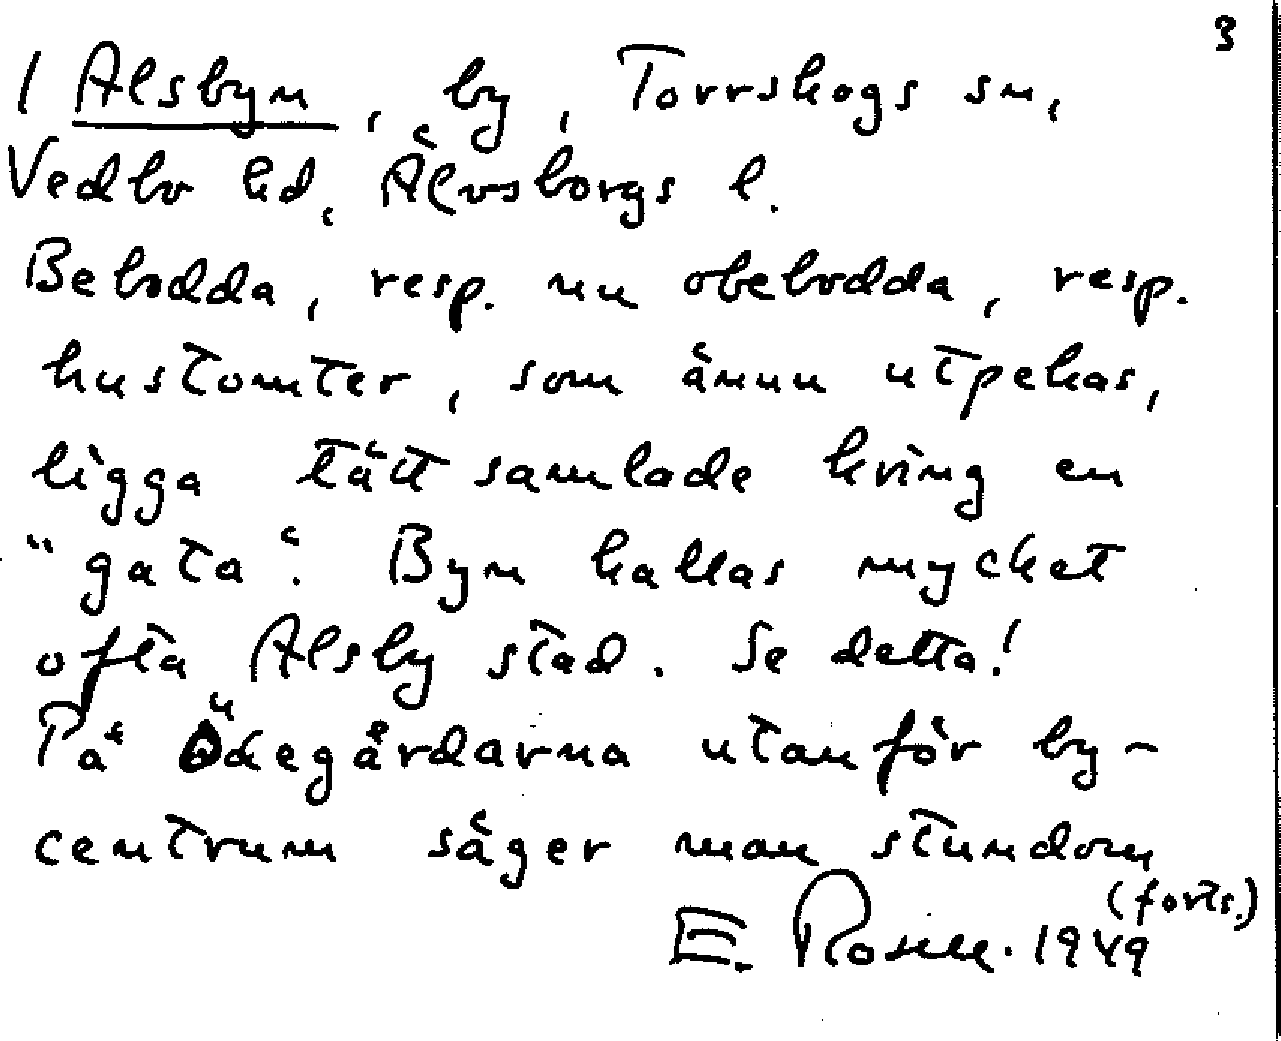 3
1 Alsbyn, by, Torrskogs sn,
Vedbo hd, Älvsborgs l.
Bebodda, resp. nu obebodda, resp.
hustomter, som ännu utpekas,
ligga tätt samlade kring en
"gata". Byn kallas mycket
ofta Alsby stad. Se detta!
På Ödegårdarna utanför by-
centrum säger man stundom
(forts.)
E. Rosell. 1949